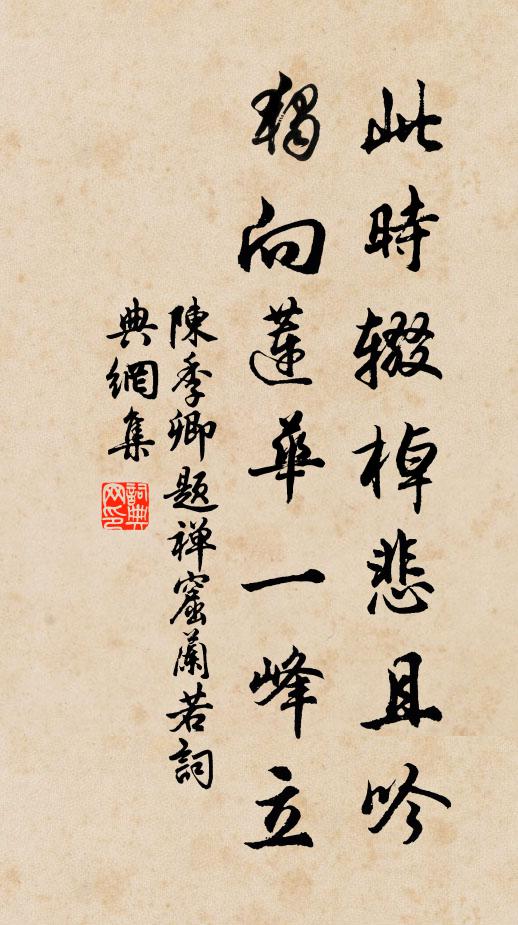 此時辍棹悲且吟
獨向蓮華一峰立
陳季卿題禅窟蘭若詞
典網集
詞典
网印